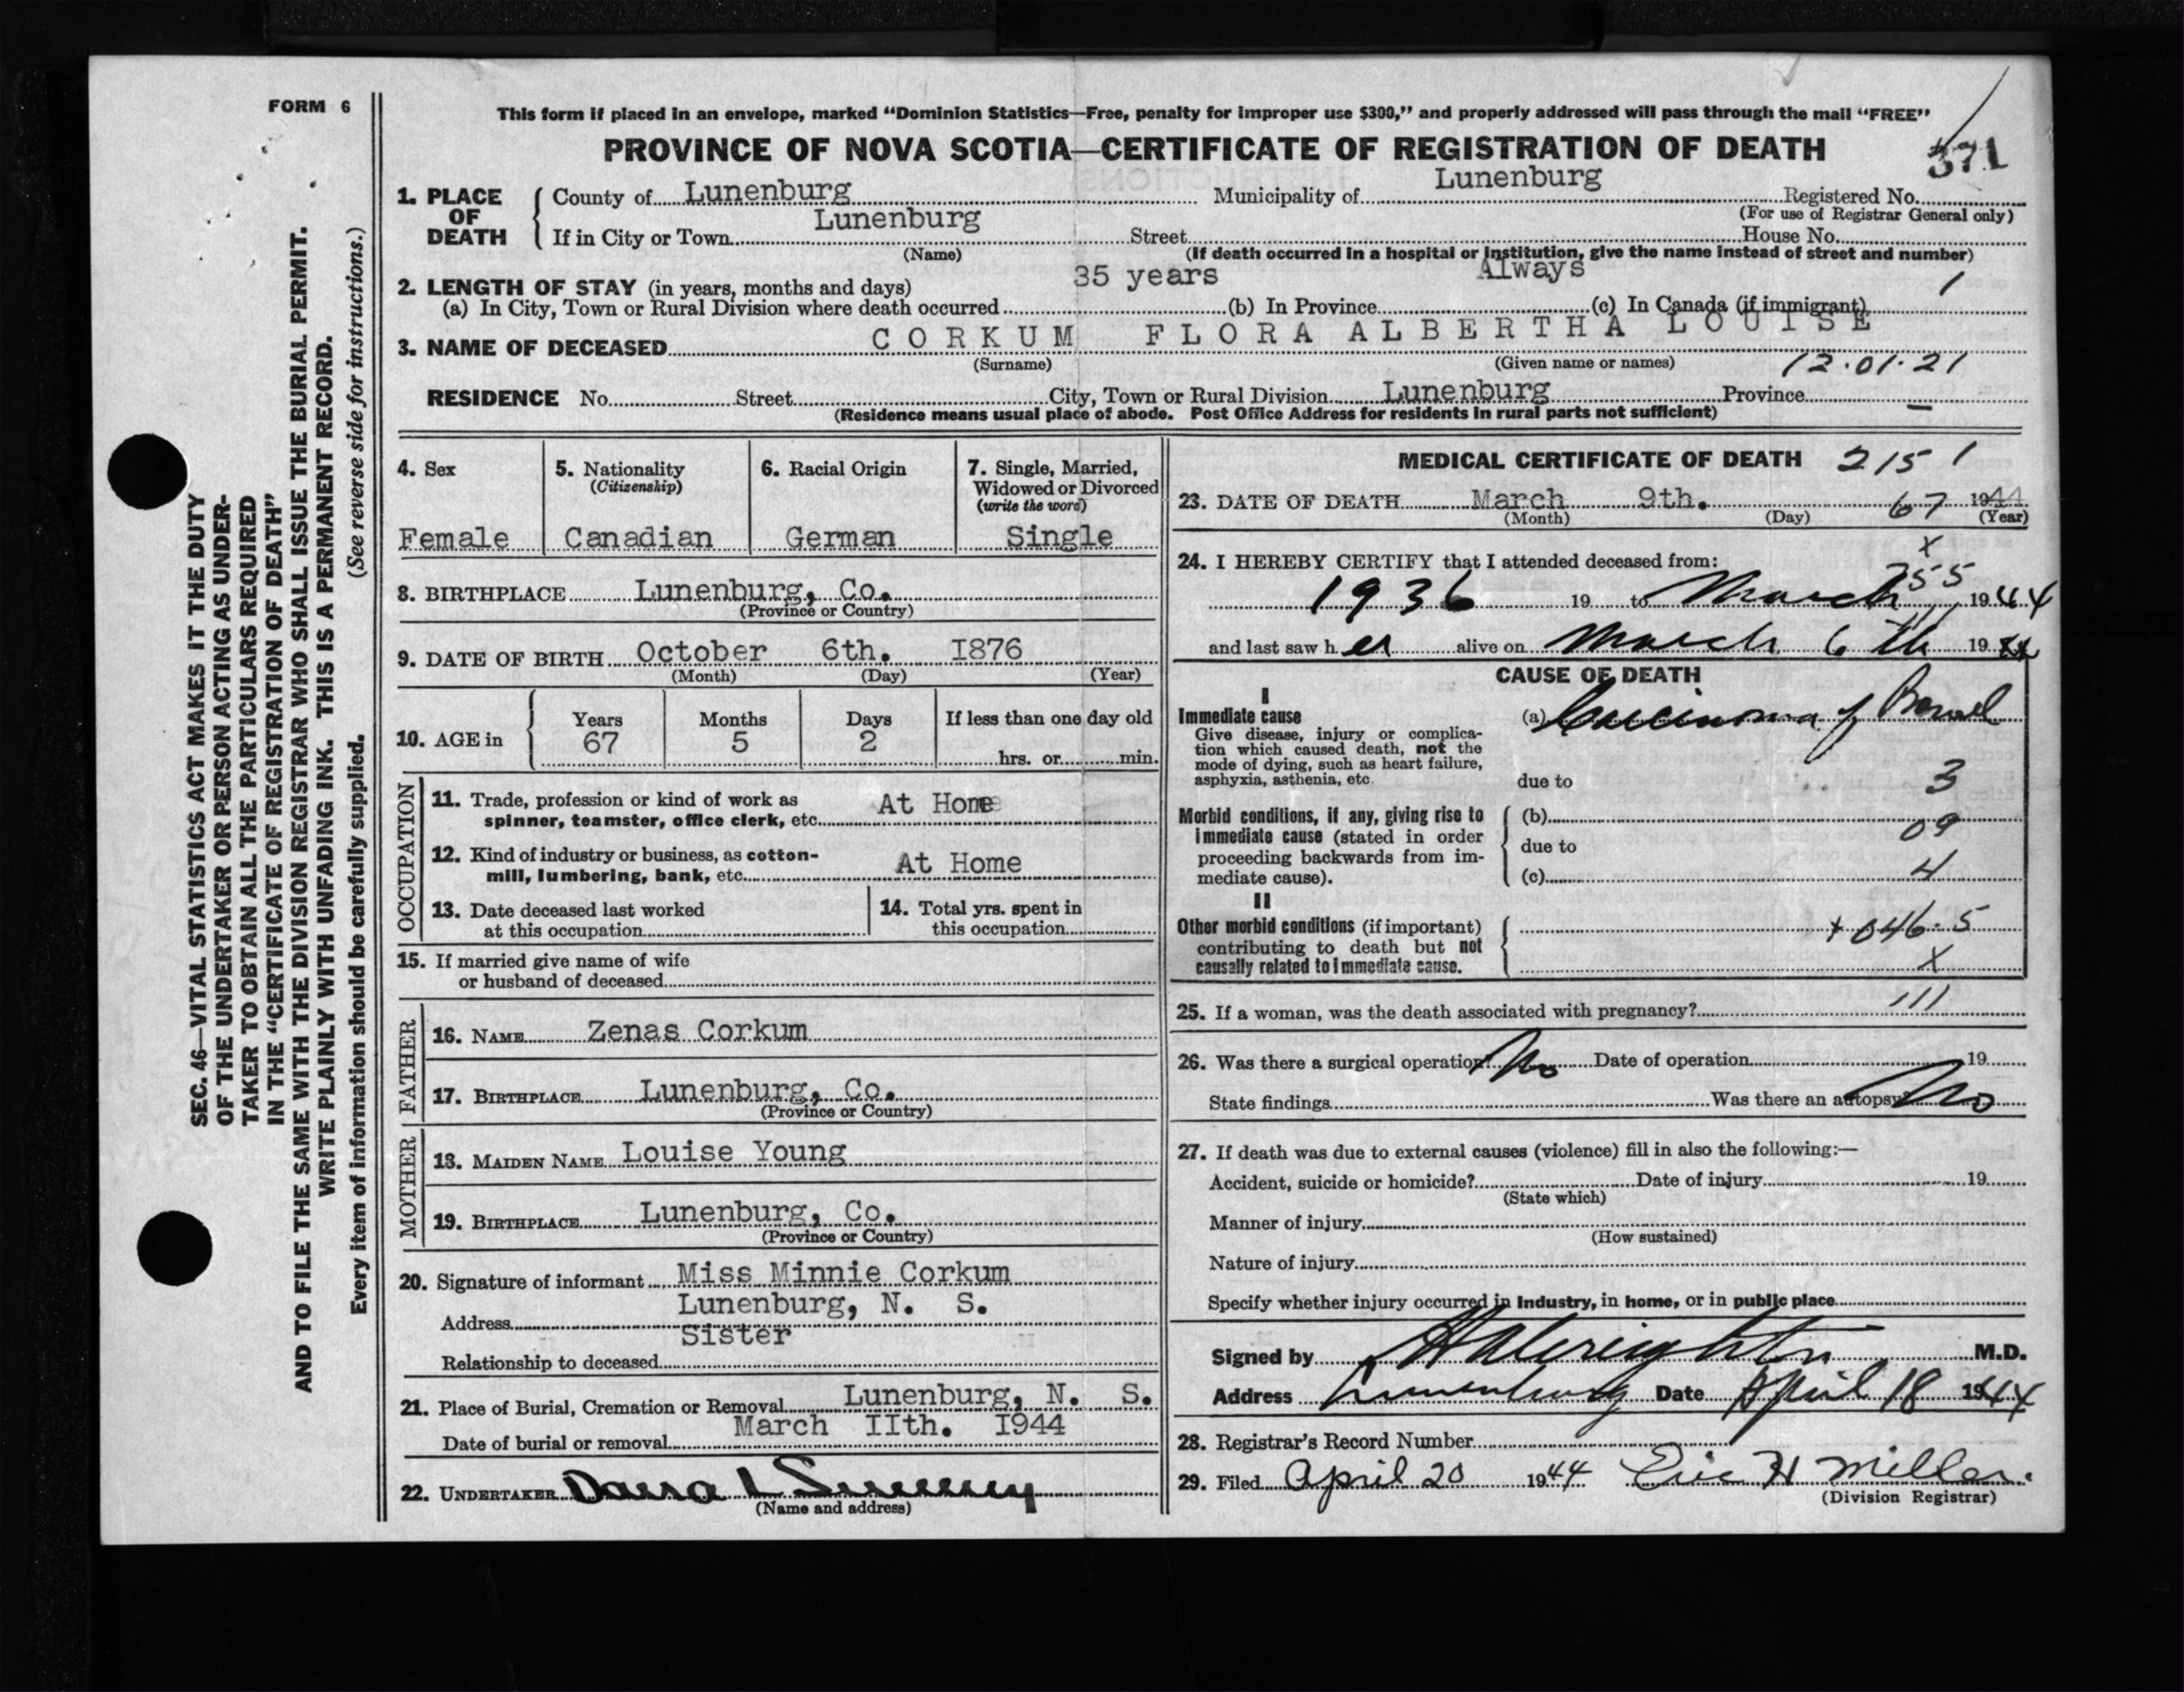 FORM 6
SEC. 46—VITAL STATISTICS ACT MAKES IT THE DUTY
OF THE UNDERTAKER OR PERSON ACTING AS UNDER-
TAKER TO OBTAIN ALL THE PARTICULARS REQUIRED
IN THE "CERTIFICATE OF REGISTRATION OF DEATH"
AND TO FILE THE SAME WITH THE DIVISION REGISTRAR WHO SHALL ISSUE THE BURIAL PERMIT.
WRITE PLAINLY WITH UNFADING INK. THIS IS A PERMANENT RECORD.
Every item of information should be carefully supplied. (See reverse side for instructions.)
This form if placed in an envelope, marked "Dominion Statistics—Free, penalty for improper use $300," and properly addressed will pass through the mail "FREE"
PROVINCE OF NOVA SCOTIA—CERTIFICATE OF REGISTRATION OF DEATH
371
1. PLACE OF DEATH
County of Lunenburg Municipality of Lunenburg Registered No.
(For use of Registrar General only)
If in City or Town Lunenburg Street House No.
(Name) (If death occurred in a hospital or institution, give the name instead of street and number)
2. LENGTH OF STAY (in years, months and days)
(a) In City, Town or Rural Division where death occurred 35 years (b) In Province Always (c) In Canada (if immigrant) 1
3. NAME OF DECEASED CORKUM FLORA ALBERTHA LOUISE
(Surname) (Given name or names) 12.01.21
RESIDENCE No. Street City, Town or Rural Division Lunenburg Province —
(Residence means usual place of abode. Post Office Address for residents in rural parts not sufficient)
4. Sex
Female
5. Nationality
(Citizenship)
Canadian
6. Racial Origin
German
7. Single, Married,
Widowed or Divorced
(write the word)
Single
8. BIRTHPLACE Lunenburg, Co.
(Province or Country)
9. DATE OF BIRTH October 6th. I876
(Month) (Day) (Year)
10. AGE in
Years Months Days If less than one day old
67 5 2
hrs. or min.
OCCUPATION
11. Trade, profession or kind of work as
spinner, teamster, office clerk, etc. At Home
12. Kind of industry or business, as cotton-
mill, lumbering, bank, etc. At Home
13. Date deceased last worked
at this occupation
14. Total yrs. spent in
this occupation
15. If married give name of wife
or husband of deceased
FATHER
16. NAME Zenas Corkum
17. BIRTHPLACE Lunenburg, Co.
(Province or Country)
MOTHER
18. MAIDEN NAME Louise Young
19. BIRTHPLACE Lunenburg, Co.
(Province or Country)
20. Signature of informant Miss Minnie Corkum
Address Lunenburg, N. S.
Relationship to deceased Sister
21. Place of Burial, Cremation or Removal Lunenburg, N. S.
Date of burial or removal March IIth. I944
22. UNDERTAKER
(Name and address)
MEDICAL CERTIFICATE OF DEATH 215 1
23. DATE OF DEATH March 9th. 67 1944
(Month) (Day) (Year)
24. I HEREBY CERTIFY that I attended deceased from: x
1936 19 to March 1944
255
and last saw h er alive on March 6 th 1944
CAUSE OF DEATH
I
Immediate cause
Give disease, injury or complica-
tion which caused death, not the
mode of dying, such as heart failure,
asphyxia, asthenia, etc.
(a) Carcinoma of Bowel
due to 3
Morbid conditions, if any, giving rise to
immediate cause (stated in order
proceeding backwards from im-
mediate cause).
(b) 09
due to
(c) 4
II
Other morbid conditions (if important)
contributing to death but not
causally related to immediate cause.
+ 046.5
X
25. If a woman, was the death associated with pregnancy? 111
26. Was there a surgical operation? No Date of operation 19
State findings Was there an autopsy? No
27. If death was due to external causes (violence) fill in also the following:—
Accident, suicide or homicide? Date of injury 19
(State which)
Manner of injury
(How sustained)
Nature of injury
Specify whether injury occurred in industry, in home, or in public place
Signed by M.D.
Address Lunenburg Date April 18 1944
28. Registrar's Record Number
29. Filed April 20 1944 Eric H Miller.
(Division Registrar)